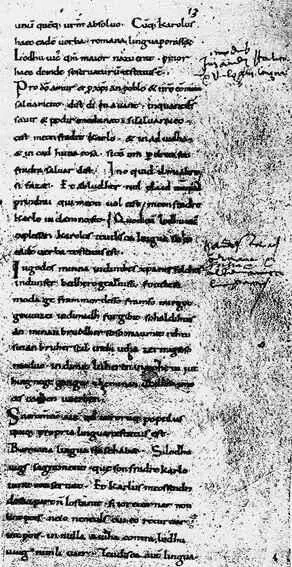 13
unū quēq; urm̄ absoluo. Cūq; karolus
haec eadē uerba romana lingua perorass&
Lodhuuic qm̄ maior natu erat prior
haec deinde se seruaturū testatus ē
Pro dō amur & p xp̄ian poblo & nrō comun
saluament. dist di in auant. inquantdś
sauir & podir medunat. sisaluaraieo
cist meonfradre karlo. & in adiudha
& in cad huna cosa. sicū om p dreit son
fradra saluar dist. Ino quid il mialtre
si faz&. Et abludher nul plaid nūquā
prindrai qui meon uol cist meonfradre
karle in damno sit. Quod cū lodhuuic
explesset. karolus teudisca lingua sic hec
eadē uerba testatus est.
In godes minna indinthes xp̄anes folches
indunser bedhero gealtnissi. fonthese
moda ge frammordesso framso mirgot
geuuizci indimadh furgibit sohaldihtes
an minan bruodher soso manmit rehtu
sinan bruher scal inthi utha zermigsoso
maduo. indimit luheren innohein iut
hing nege ganga. zheminan uuillon imo
ces cadhen uuerhen.
Sacramentū autē quod utrorumq; populus
quisq; propria lingua testatus est.
Romana lingua sic se hab&. Silodhu
uigs sagrament. que son fradre karlo
iurat conseruat. Et karlus meossendra
desuo partn̄ lostanit. si ioreturnar non
lint pois. neio neneuls cui eo returnar
int pois. in nulla aiudha contra lodhu
uuig nunli iuer. Teudisca autē lingua